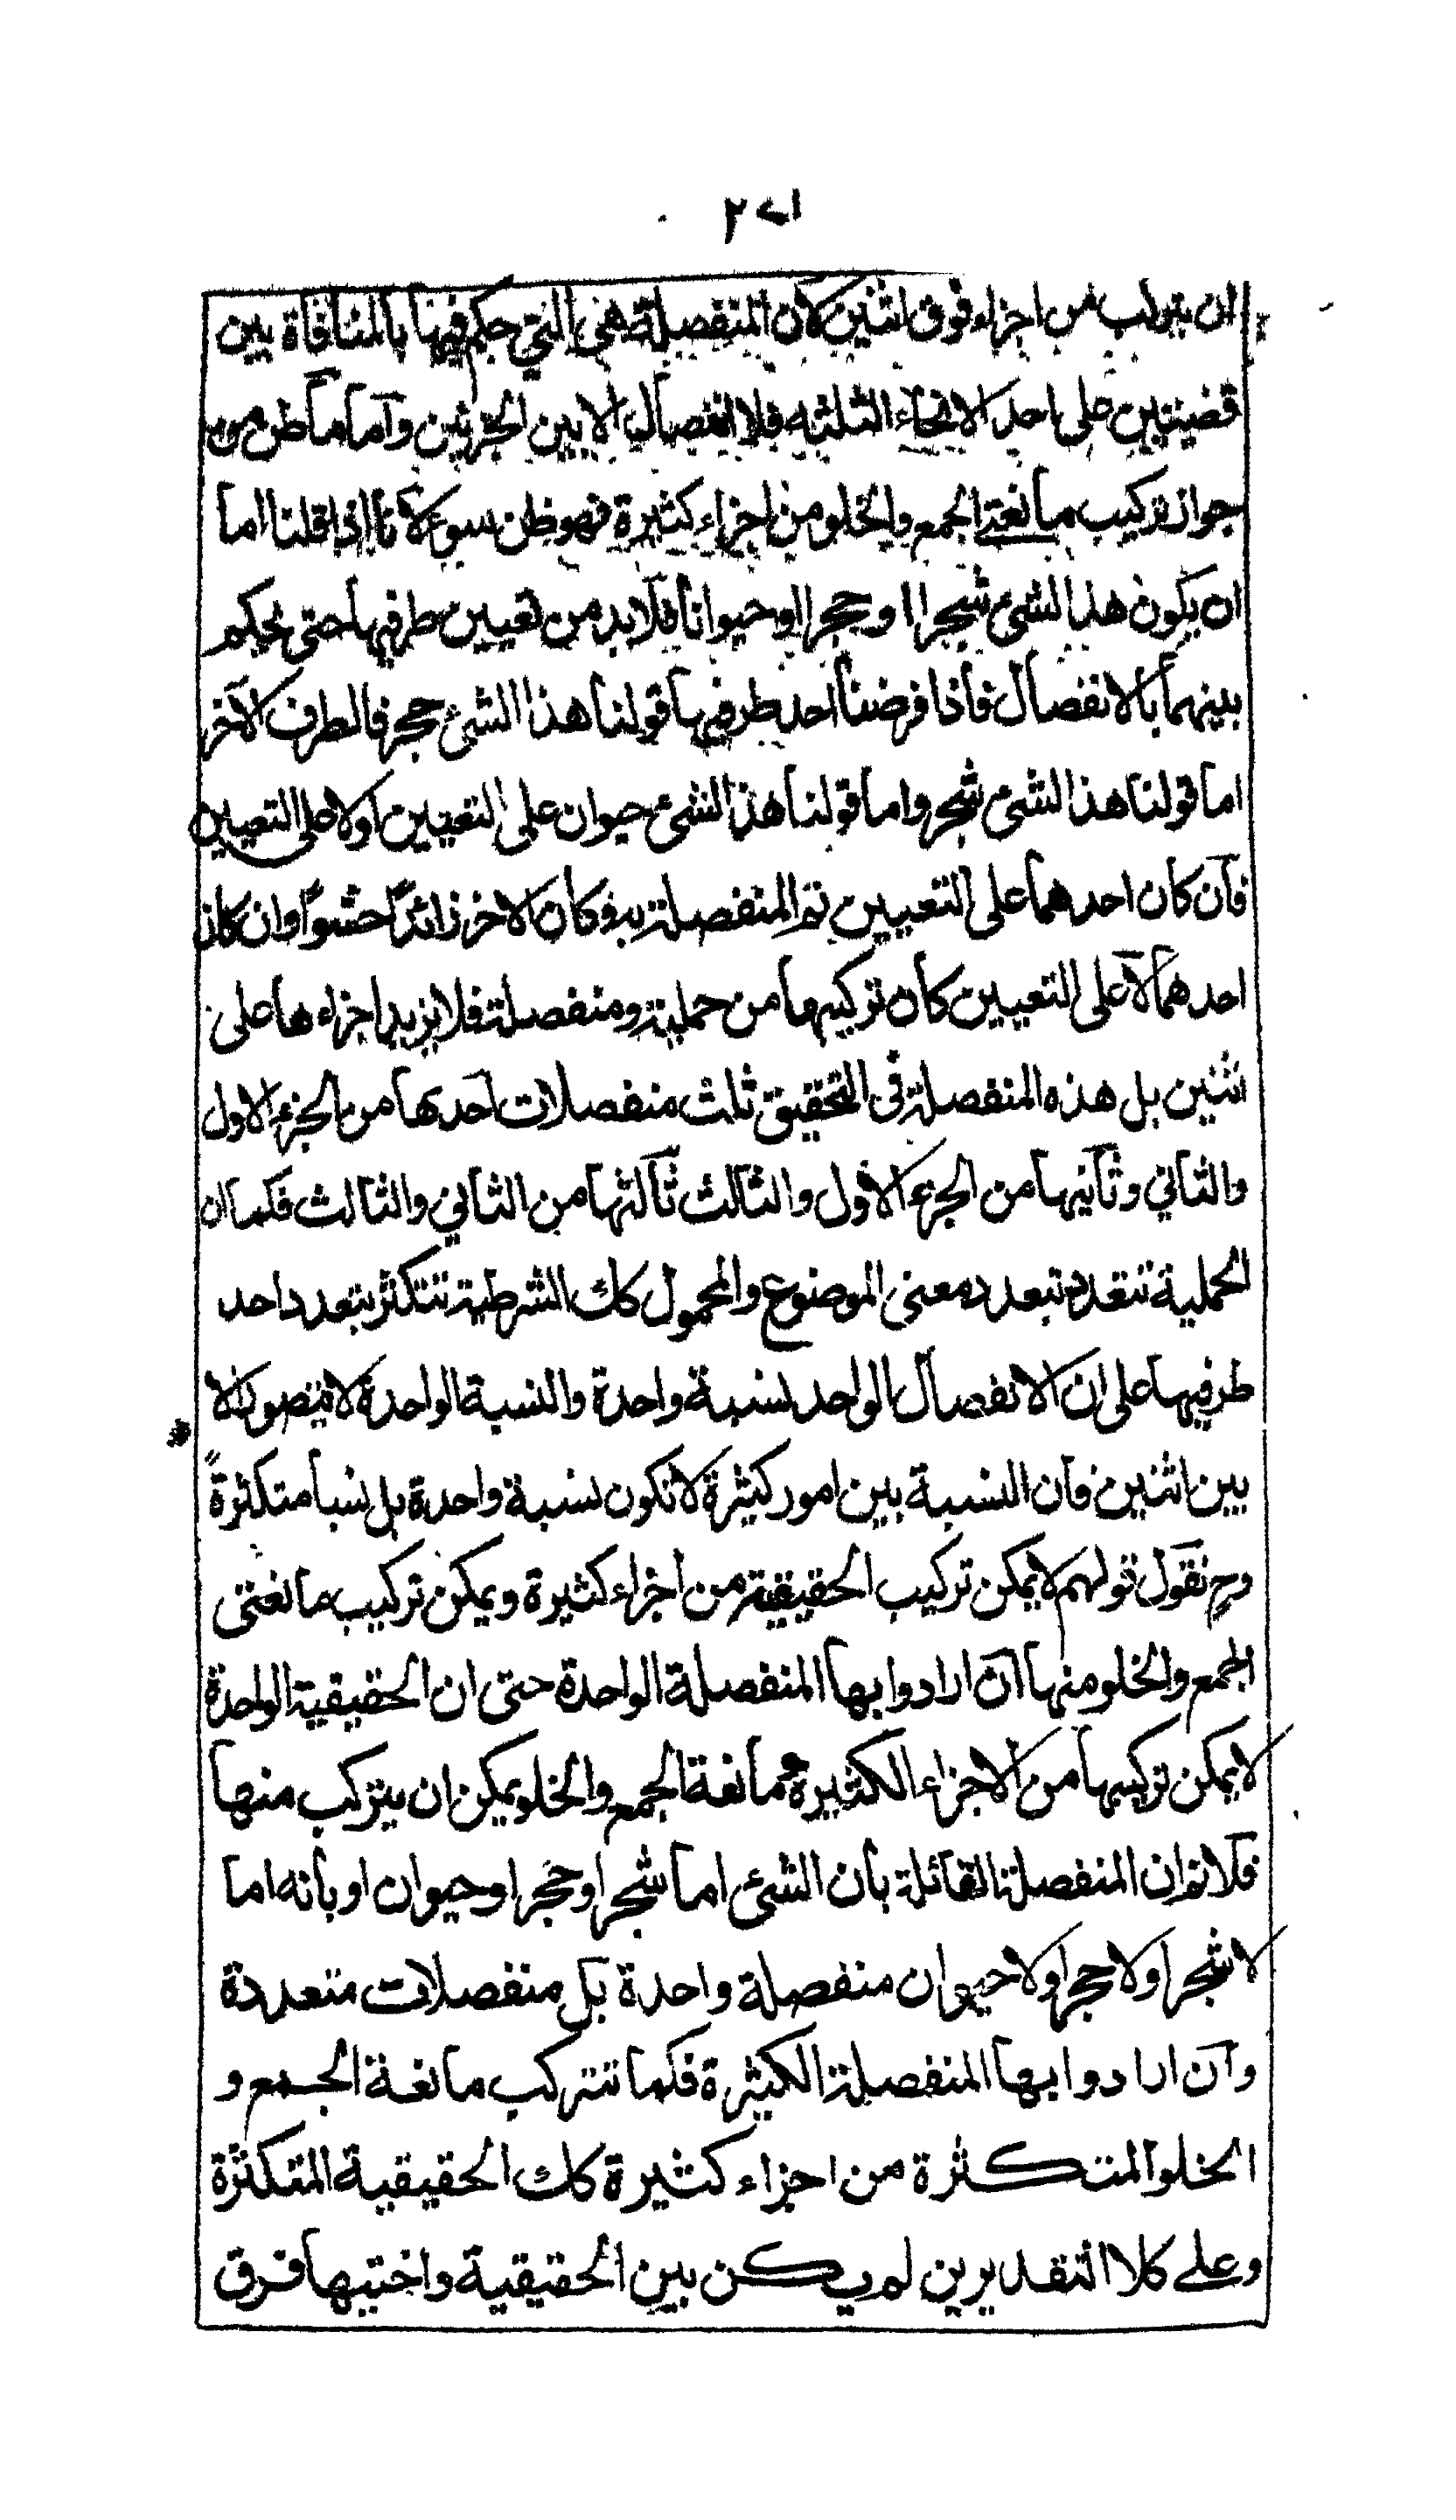 ٢٧١
ان يتركب من اجزاء فوق اثنين لان المنفصلة هي التي حكم فيها بالمنافاة بين
قضيتين على احد الانحاء الثلثه فلا انفصال الا بين الجزئين وآما ما ظن من
جواز تركيب مانعتي الجمع والخلو من اجزاء كثيرة فهو ظن سوء لانا اذا قلنا اما
ان يكون هذا الشئ شجرا او حجرا او حيوانا فلا بد من تعيين طرفيها حتى يحكم
بينهما بالانفصال فاذا فرضنا احد طرفيها قولنا هذا الشئ حجر فالطرف الآخر
اما قولنا هذا الشئ شجر واما قولنا هذا الشئ حيوان على التعيين اولا على التعيين
فآن كان احدهما على التعيين تم المنفصلة به وكان الاخر زائدًا حشوًا وان كان
احدهما لا على التعيين كان تركيبها من حملية ومنفصلة فلا يزيد اجزاءها على
اثنين بل هذه المنفصلة فى التحقيق ثلث منفصلات آحدها من الجزء الاول
والثاني وثآنيها من الجزء الاول والثالث ثآلثها من الثاني والثالث فكما ان
الحملية تتعدد بتعدد معنى الموضوع والمحمول كك الشرطية تتكثر بتعدد احد
طرفيها على ان الانفصال الواحد نسبة واحدة والنسبة الواحدة لا يتصور الا
بين اثنين فآن النسبة بين امور كثيرة لا تكون نسبة واحدة بل نسبا متكثرةً
وح نقول قولهم لا يمكن تركيب الحقيقية من اجزاء كثيرة ويمكن تركيب مانعتى
الجمع والخلو منها آن ارادوا بها المنفصلة الواحدة حتى ان الحقيقية الواحدة
لا يمكن تركيبها من الاجزاء الكثيرة ومانعة الجمع والخلو يمكن ان يتركب منها
فلا نم ان المنفصلة القائلة بان الشئ اما شجر او حجر او حيوان او بانه اما
لا شجر او لا حجر او لا حيوان منفصلة واحدة بل منفصلات متعددة
وآن ارادوا بها المنفصلة الكثيرة فكما تتركب مانعة الجمع و
الخلو المتكثرة من اجزاء كثيرة كك الحقيقية المتكثرة
وعلى كلا التقديرين لم يكن بين الحقيقية واختيها فرق